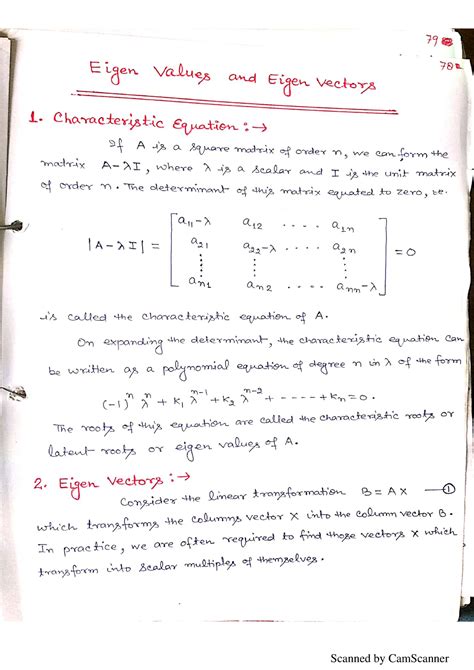 79
78
Eigen Values and Eigen Vectors
1. Characteristic Equation :→
If A is a square matrix of order n, we can form the
matrix A-λI, where λ is a scalar and I is the unit matrix
of order n. The determinant of this matrix equated to zero, ie.
|A-λI| = [a11-λ a12 .... a1n
a21 a22-λ .... a2n
⋮ ⋮ ⋮
an1 an2 .... ann-λ] = 0
is called the characteristic equation of A.
On expanding the determinant, the characteristic equation can
be written as a polynomial equation of degree n in λ of the form
(-1)^n λ^n + K1 λ^n-1 + K2 λ^n-2 + ----- + Kn = 0.
The roots of this equation are called the characteristic roots or
latent roots or eigen values of A.
2. Eigen Vectors :→
Consider the linear transformation B = AX —①
which transforms the columns vector X into the column vector B.
In practice, we are often required to find those vectors X which
transform into scalar multiples of themselves.
Scanned by CamScanner